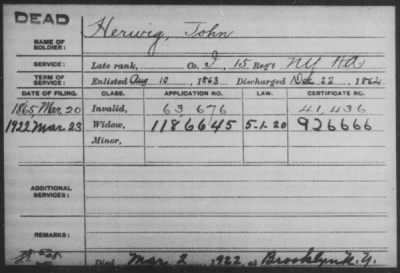 DEAD
NAME OF SOLDIER: Herwig, John
SERVICE: Late rank, Co. I, 15 Reg't NY HA
TERM OF SERVICE: Enlisted Aug 10, 1863 Discharged Dec 22, 1864
DATE OF FILING. CLASS. APPLICATION NO. LAW. CERTIFICATE NO.
1865 Mar 20 Invalid, 63 676 41,436
1922 Mar 23 Widow, 1186645 5-1-20 926666
Minor,
ADDITIONAL SERVICES:
REMARKS:
Died Mar 2, 1922, at Brooklyn N.Y.